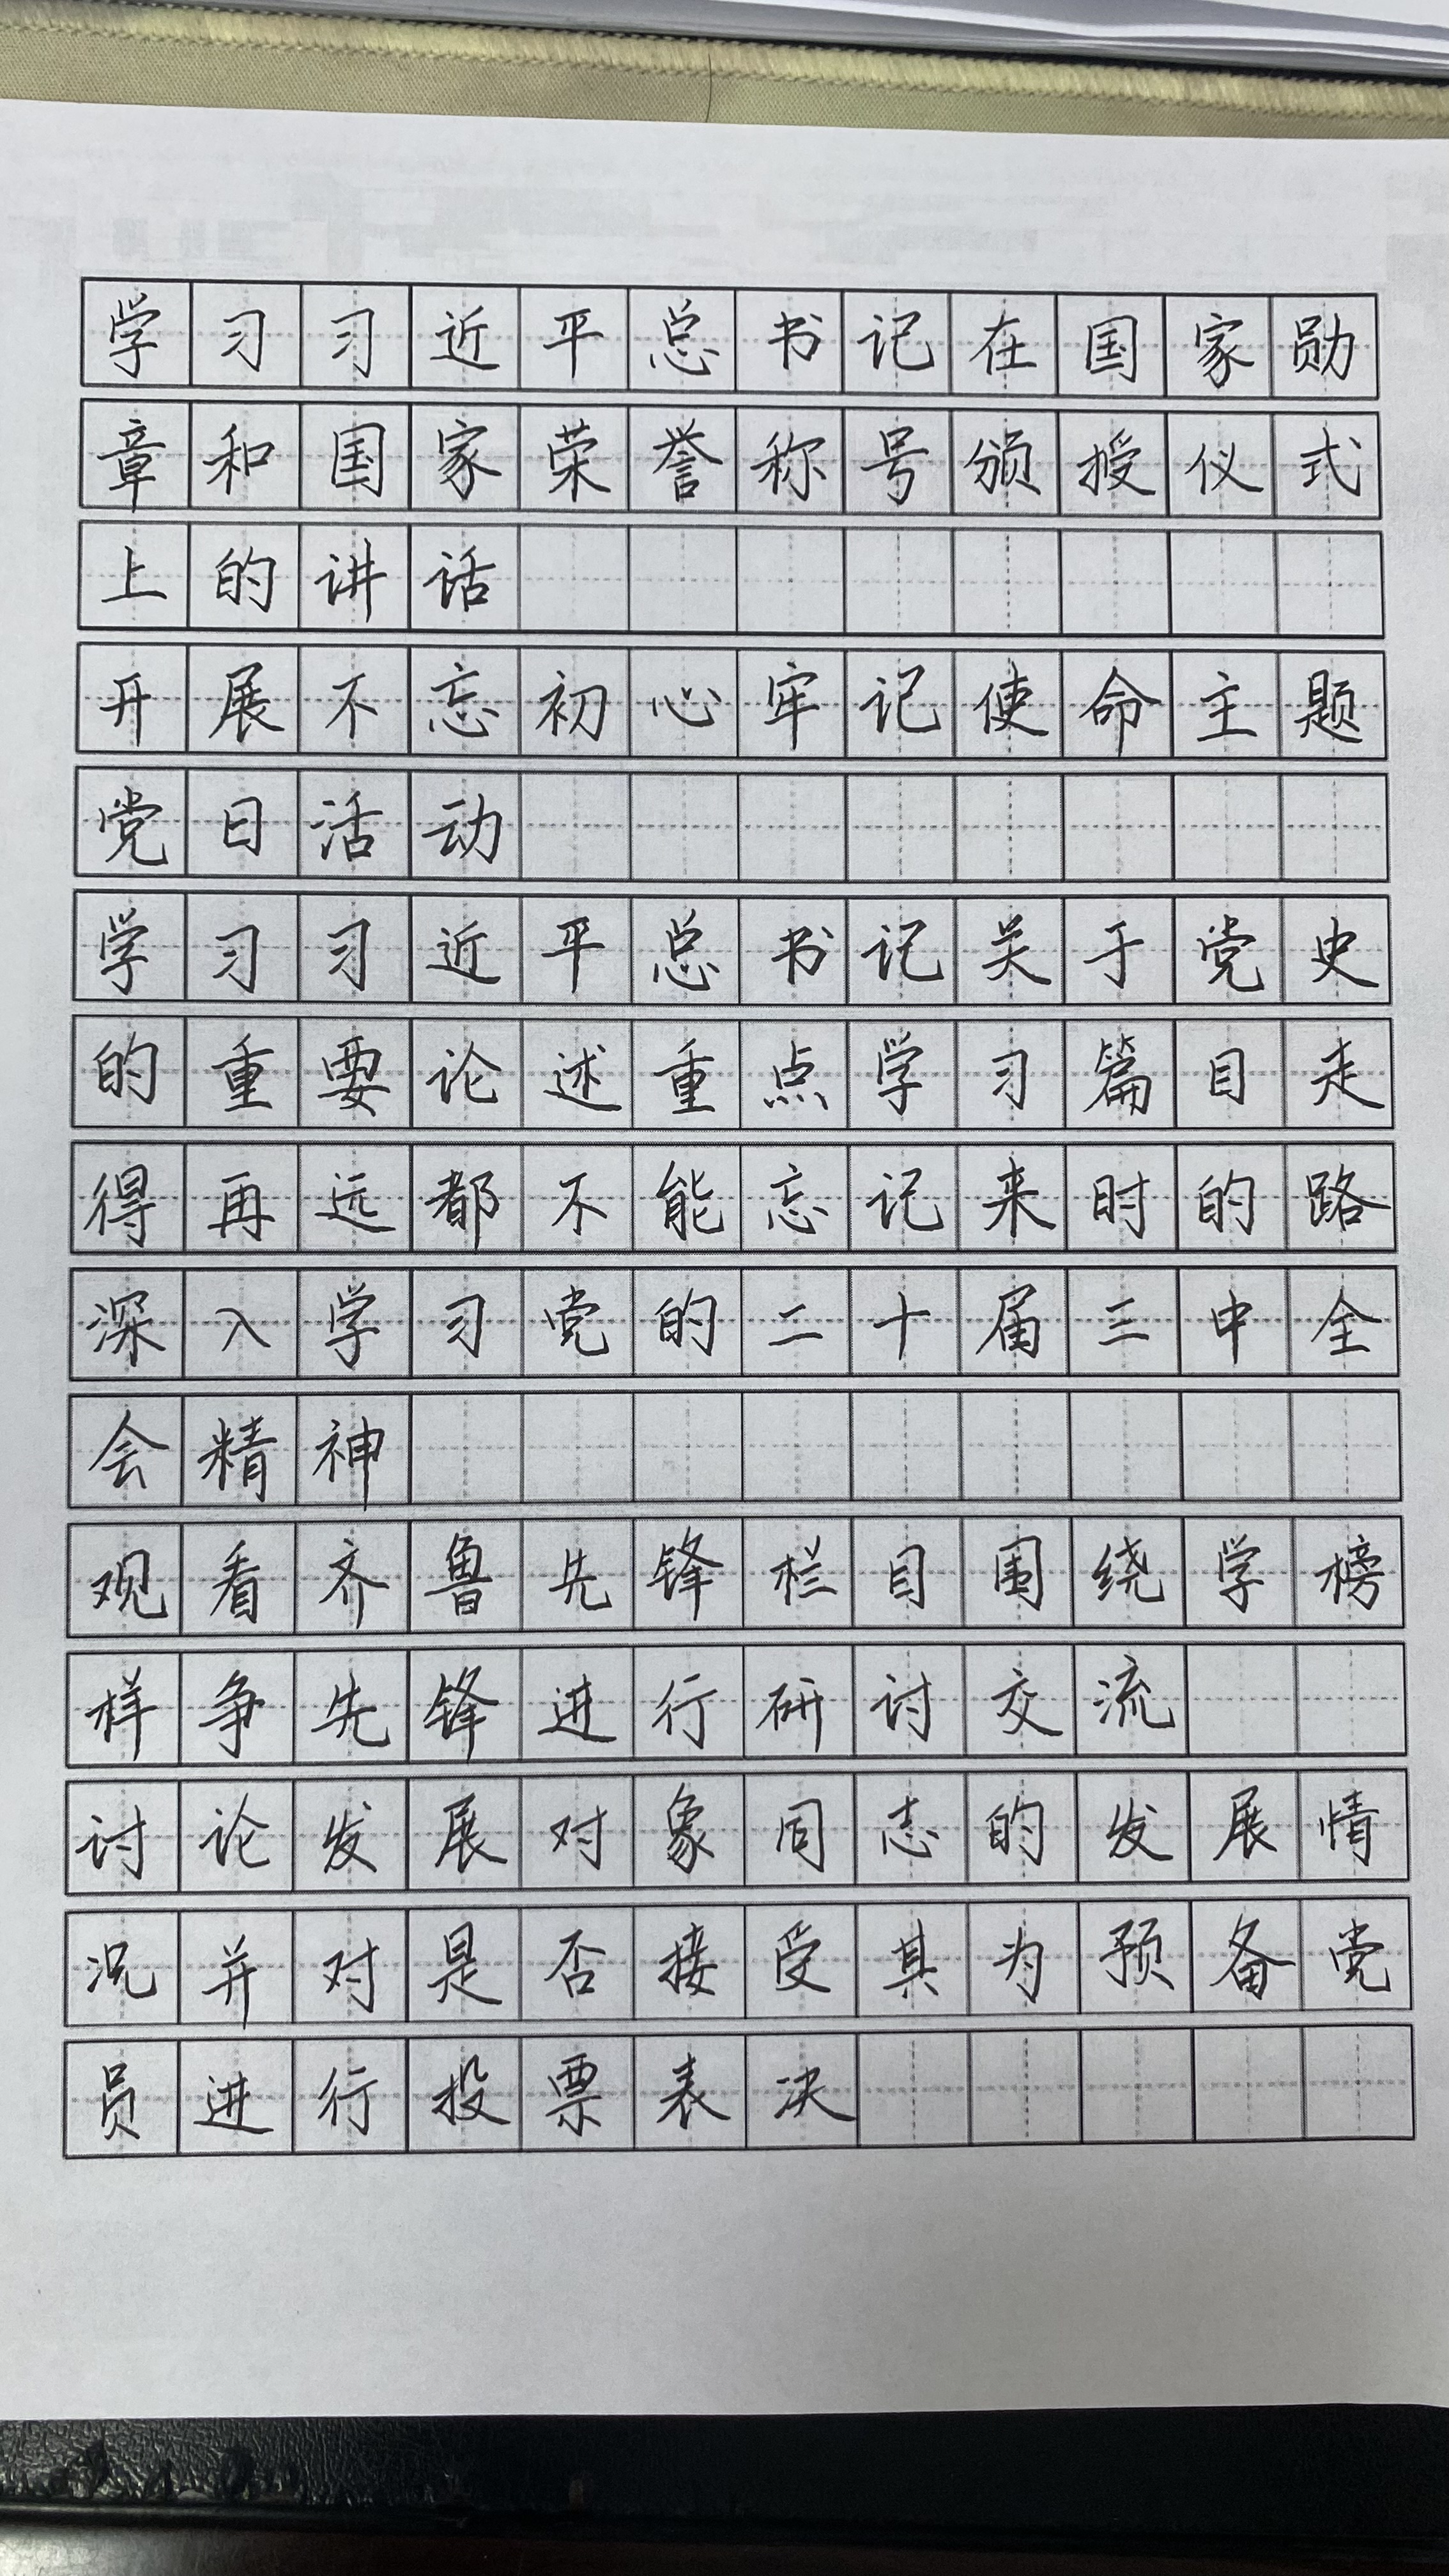 学习习近平总书记在国家勋
章和国家荣誉称号颁授仪式
上的讲话
开展不忘初心牢记使命主题
党日活动
学习习近平总书记关于党史
的重要论述重点学习篇目走
得再远都不能忘记来时的路
深入学习党的二十届三中全
会精神
观看齐鲁先锋栏目围绕学榜
样争先锋进行研讨交流
讨论发展对象同志的发展情
况并对是否接受其为预备党
员进行投票表决